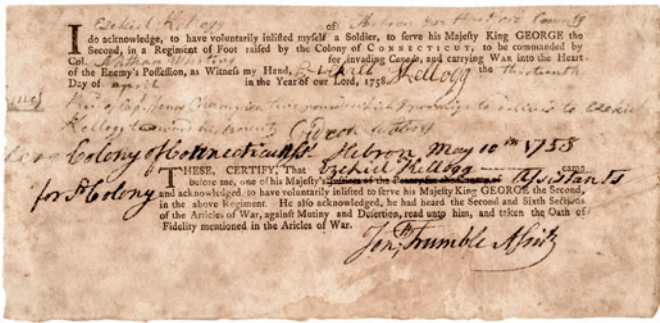 I Ezekiel Kellogg of Hebron in Hartford County
do acknowledge, to have voluntarily inlisted myself a Soldier, to serve his Majesty King GEORGE the
Second, in a Regiment of Foot raised by the Colony of CONNECTICUT, to be commanded by
Col. Nathan Whiting for invading Canada, and carrying WAR into the Heart
of the Enemy's Possession, as Witness my Hand, Ezekiel Kellogg the thirteenth
Day of april in the Year of our Lord, 1758.
Henry Champion two pounds which I promise to deliver to Ezekiel
Kellogg
Colony of Connecticut ss. Hebron May 10th 1758
THESE, CERTIFY, That Ezekiel Kellogg came
before me, one of his Majesty's Assistants
for sd Colony and acknowledged, to have voluntarily inlisted to serve his Majesty KING GEORGE the Second,
in the above Regiment. He also acknowledged, he had heard the Second and Sixth Sections
of the Articles of War, against Mutiny and Desertion, read unto him, and taken the Oath of
Fidelity mentioned in the Aricles of War.
Jonth Trumble Assist